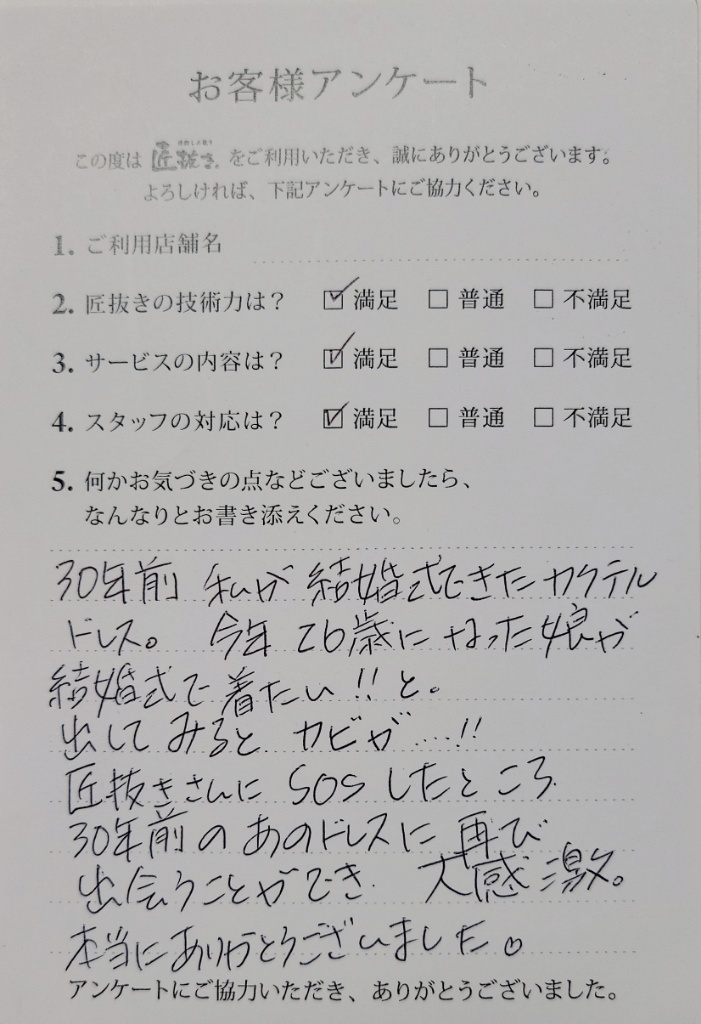 お客様アンケート
この度は 匠抜き をご利用いただき、誠にありがとうございます。
よろしければ、下記アンケートにご協力ください。
1. ご利用店舗名
2. 匠抜きの技術力は? ☑ 満足 □ 普通 □ 不満足
3. サービスの内容は? ☑ 満足 □ 普通 □ 不満足
4. スタッフの対応は? ☑ 満足 □ 普通 □ 不満足
5. 何かお気づきの点などございましたら、
なんなりとお書き添えください。
30年前 私が 結婚式できた カクテル
ドレス。 今年 26歳に なった娘が
結婚式で 着たい!!と。
出して みると カビが....!!
匠抜きさんに SOS したところ
30年前の あのドレスに 再び
出会うことができ 大感激。
本当にありがとうございました。♡
アンケートにご協力いただき、ありがとうございました。